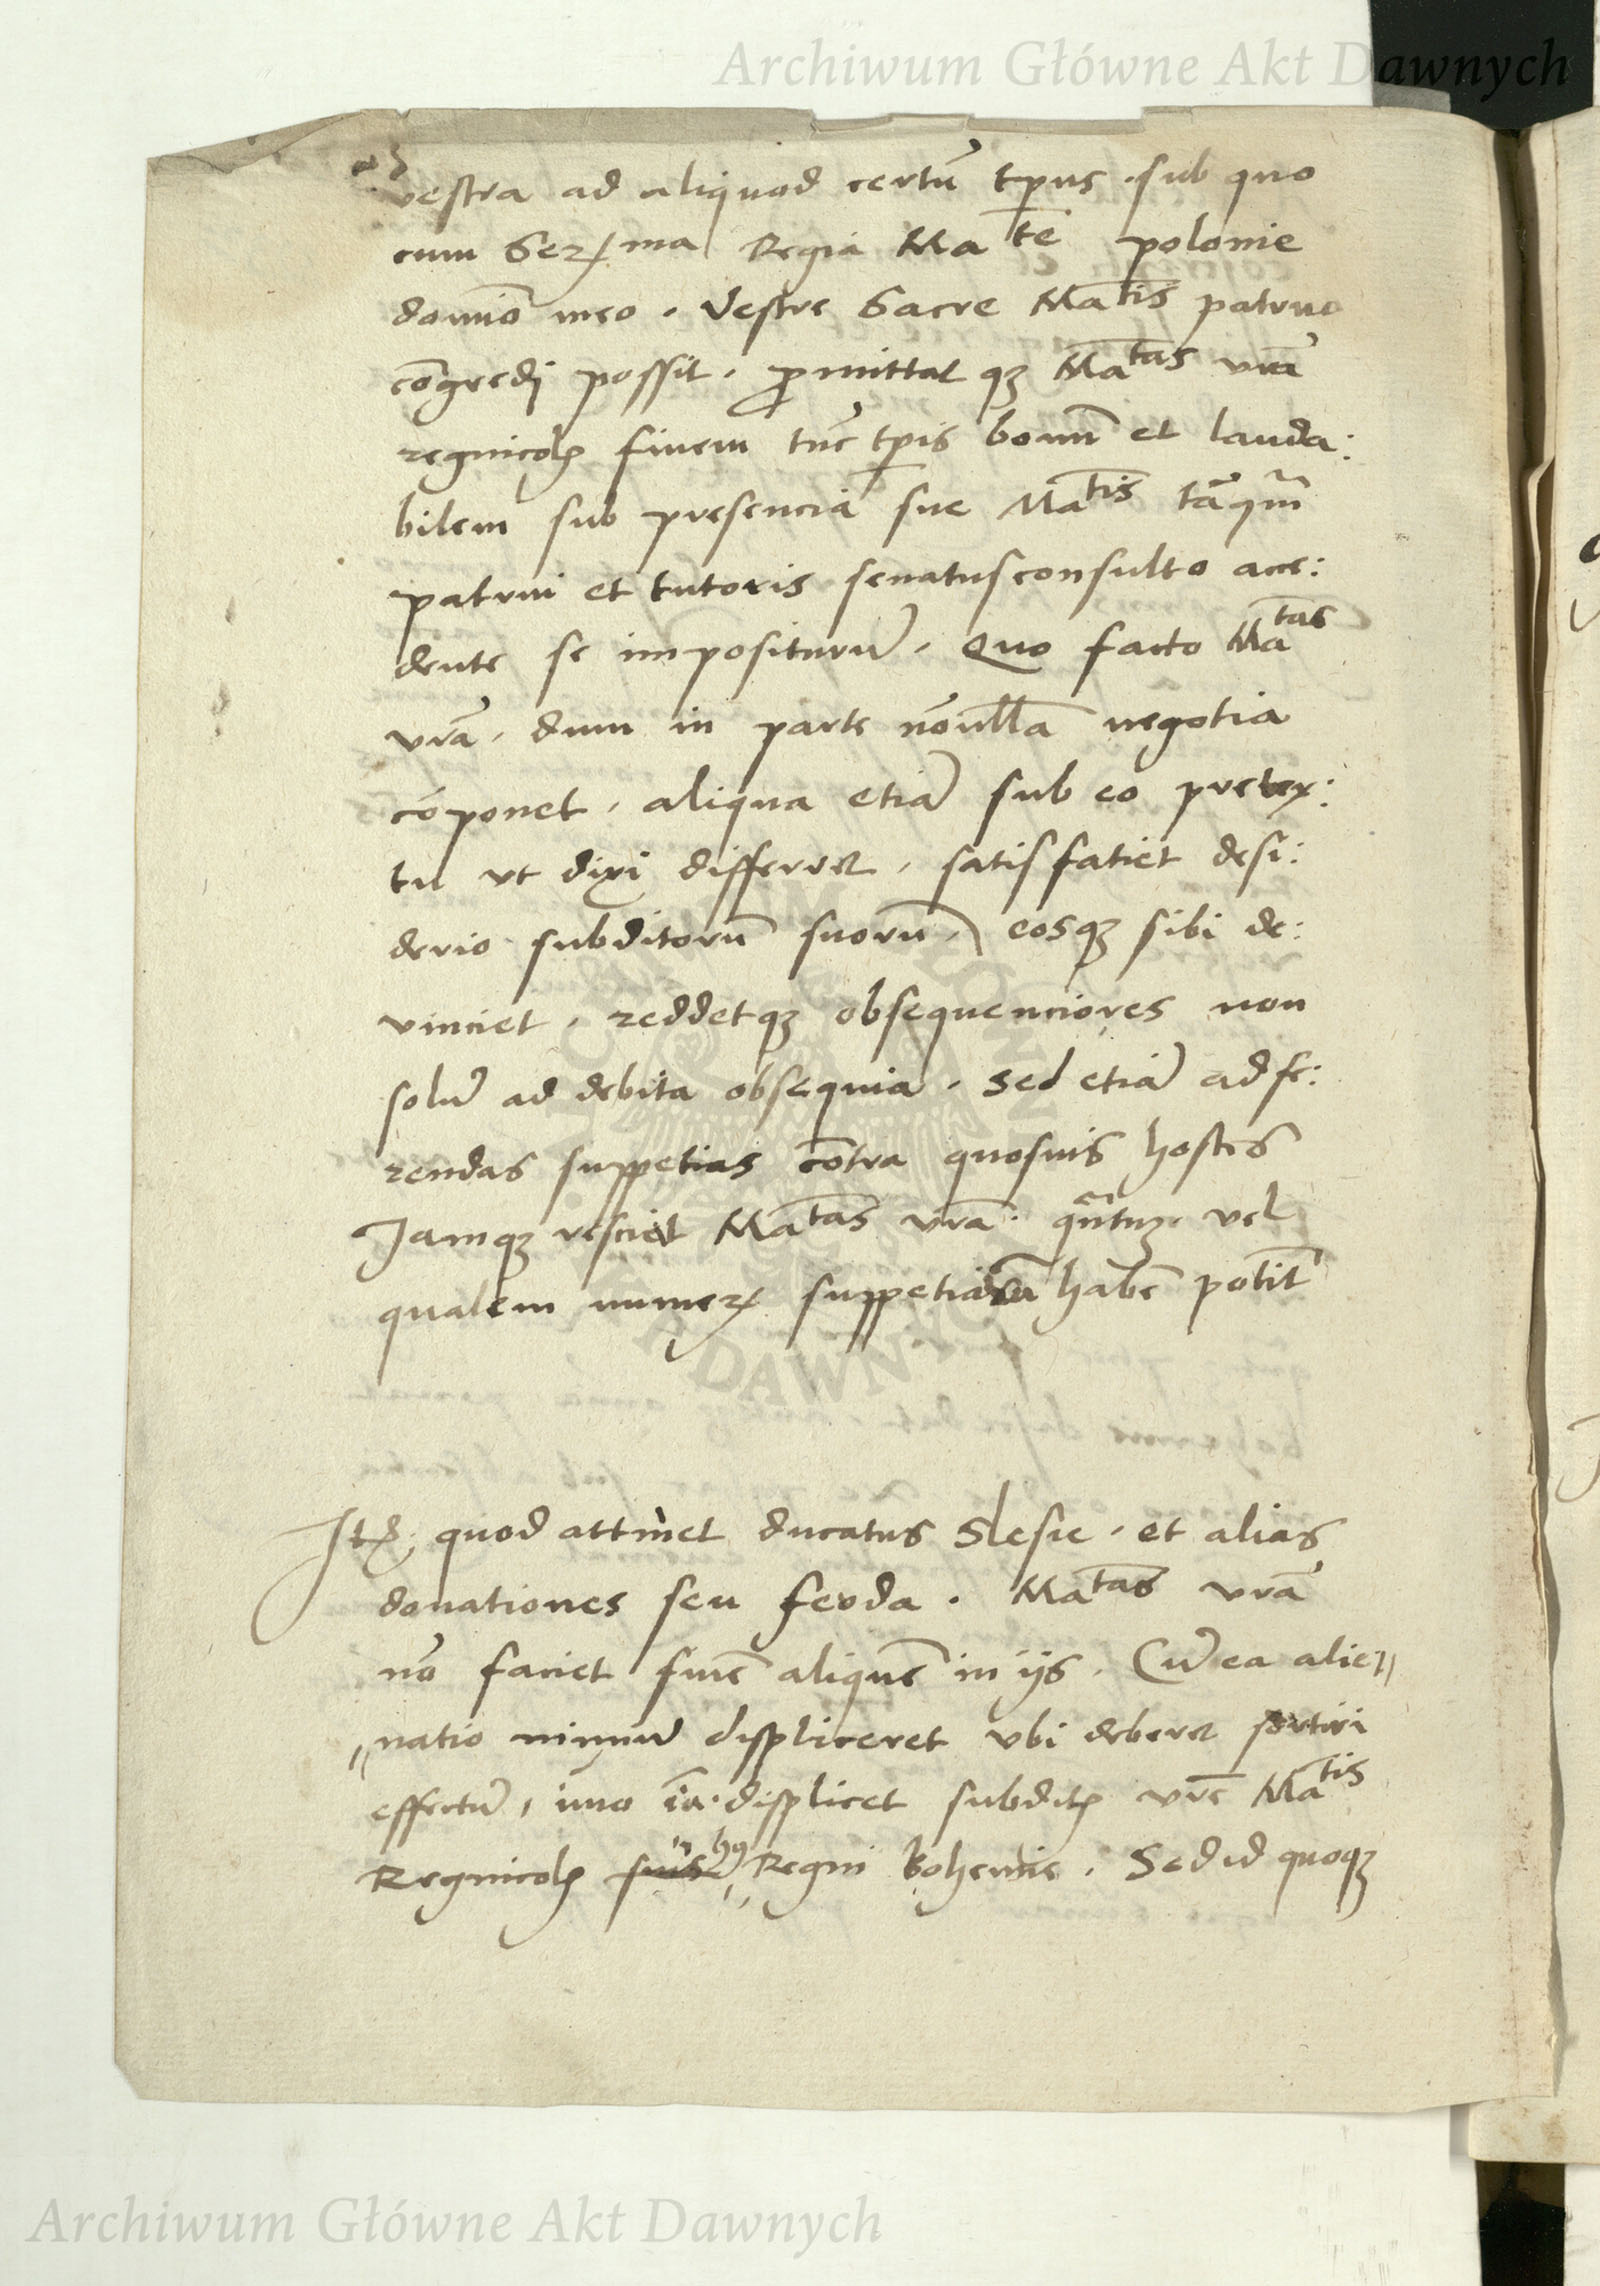 Archiwum Główne Akt Dawnych
vestra ad aliquod certū tp̄us . sub quo
cum Serꝫma Regia Mate polonie
domīo meo . Vestre Sacre Matis patruo
cōgredi possit . ꝓmittat qꝫ Matas vrā
regnicolꝭ finem tūc tp̄is bonū et lauda:
bilem sub presenciā sue Matis tāqm̄
patrui et tutoris senatusconsulto acce:
dente se imposituru̅ . Quo facto Matas
vrā . dum in parte nōnulla negotia
cōponet , aliqua etiā sub eo pretex:
tu ut dixi differret , satisfatiet desi:
derio subditorū suorū , eosqꝫ sibi de:
vinciet , reddetqꝫ obsequenciores non
solū ad debita obsequia . sed etiā ad fe:
rendas suppetias cōtra quosuis hostes
Jamqꝫ resciet Matas vrā . qn̄tuꝫ vel
qualem numerꝫ suppetiarū habē potit̄
Itꝫ quod attinet ducatus Slesie . et alias
donationes seu feoda . Matas vrā
nō faciet finē aliquē in ijs . Cū ea alie„
„natio nimiū displiceret ubi deberet sortiri
effectū , imo iā displicet subditꝭ vrē Matis
Regnicolꝭ suis hꝰ Regni Bohemie . Sed id quoqꝫ
ARCHIWUM GŁÓWNE AKT DAWNYCH
Archiwum Główne Akt Dawnych